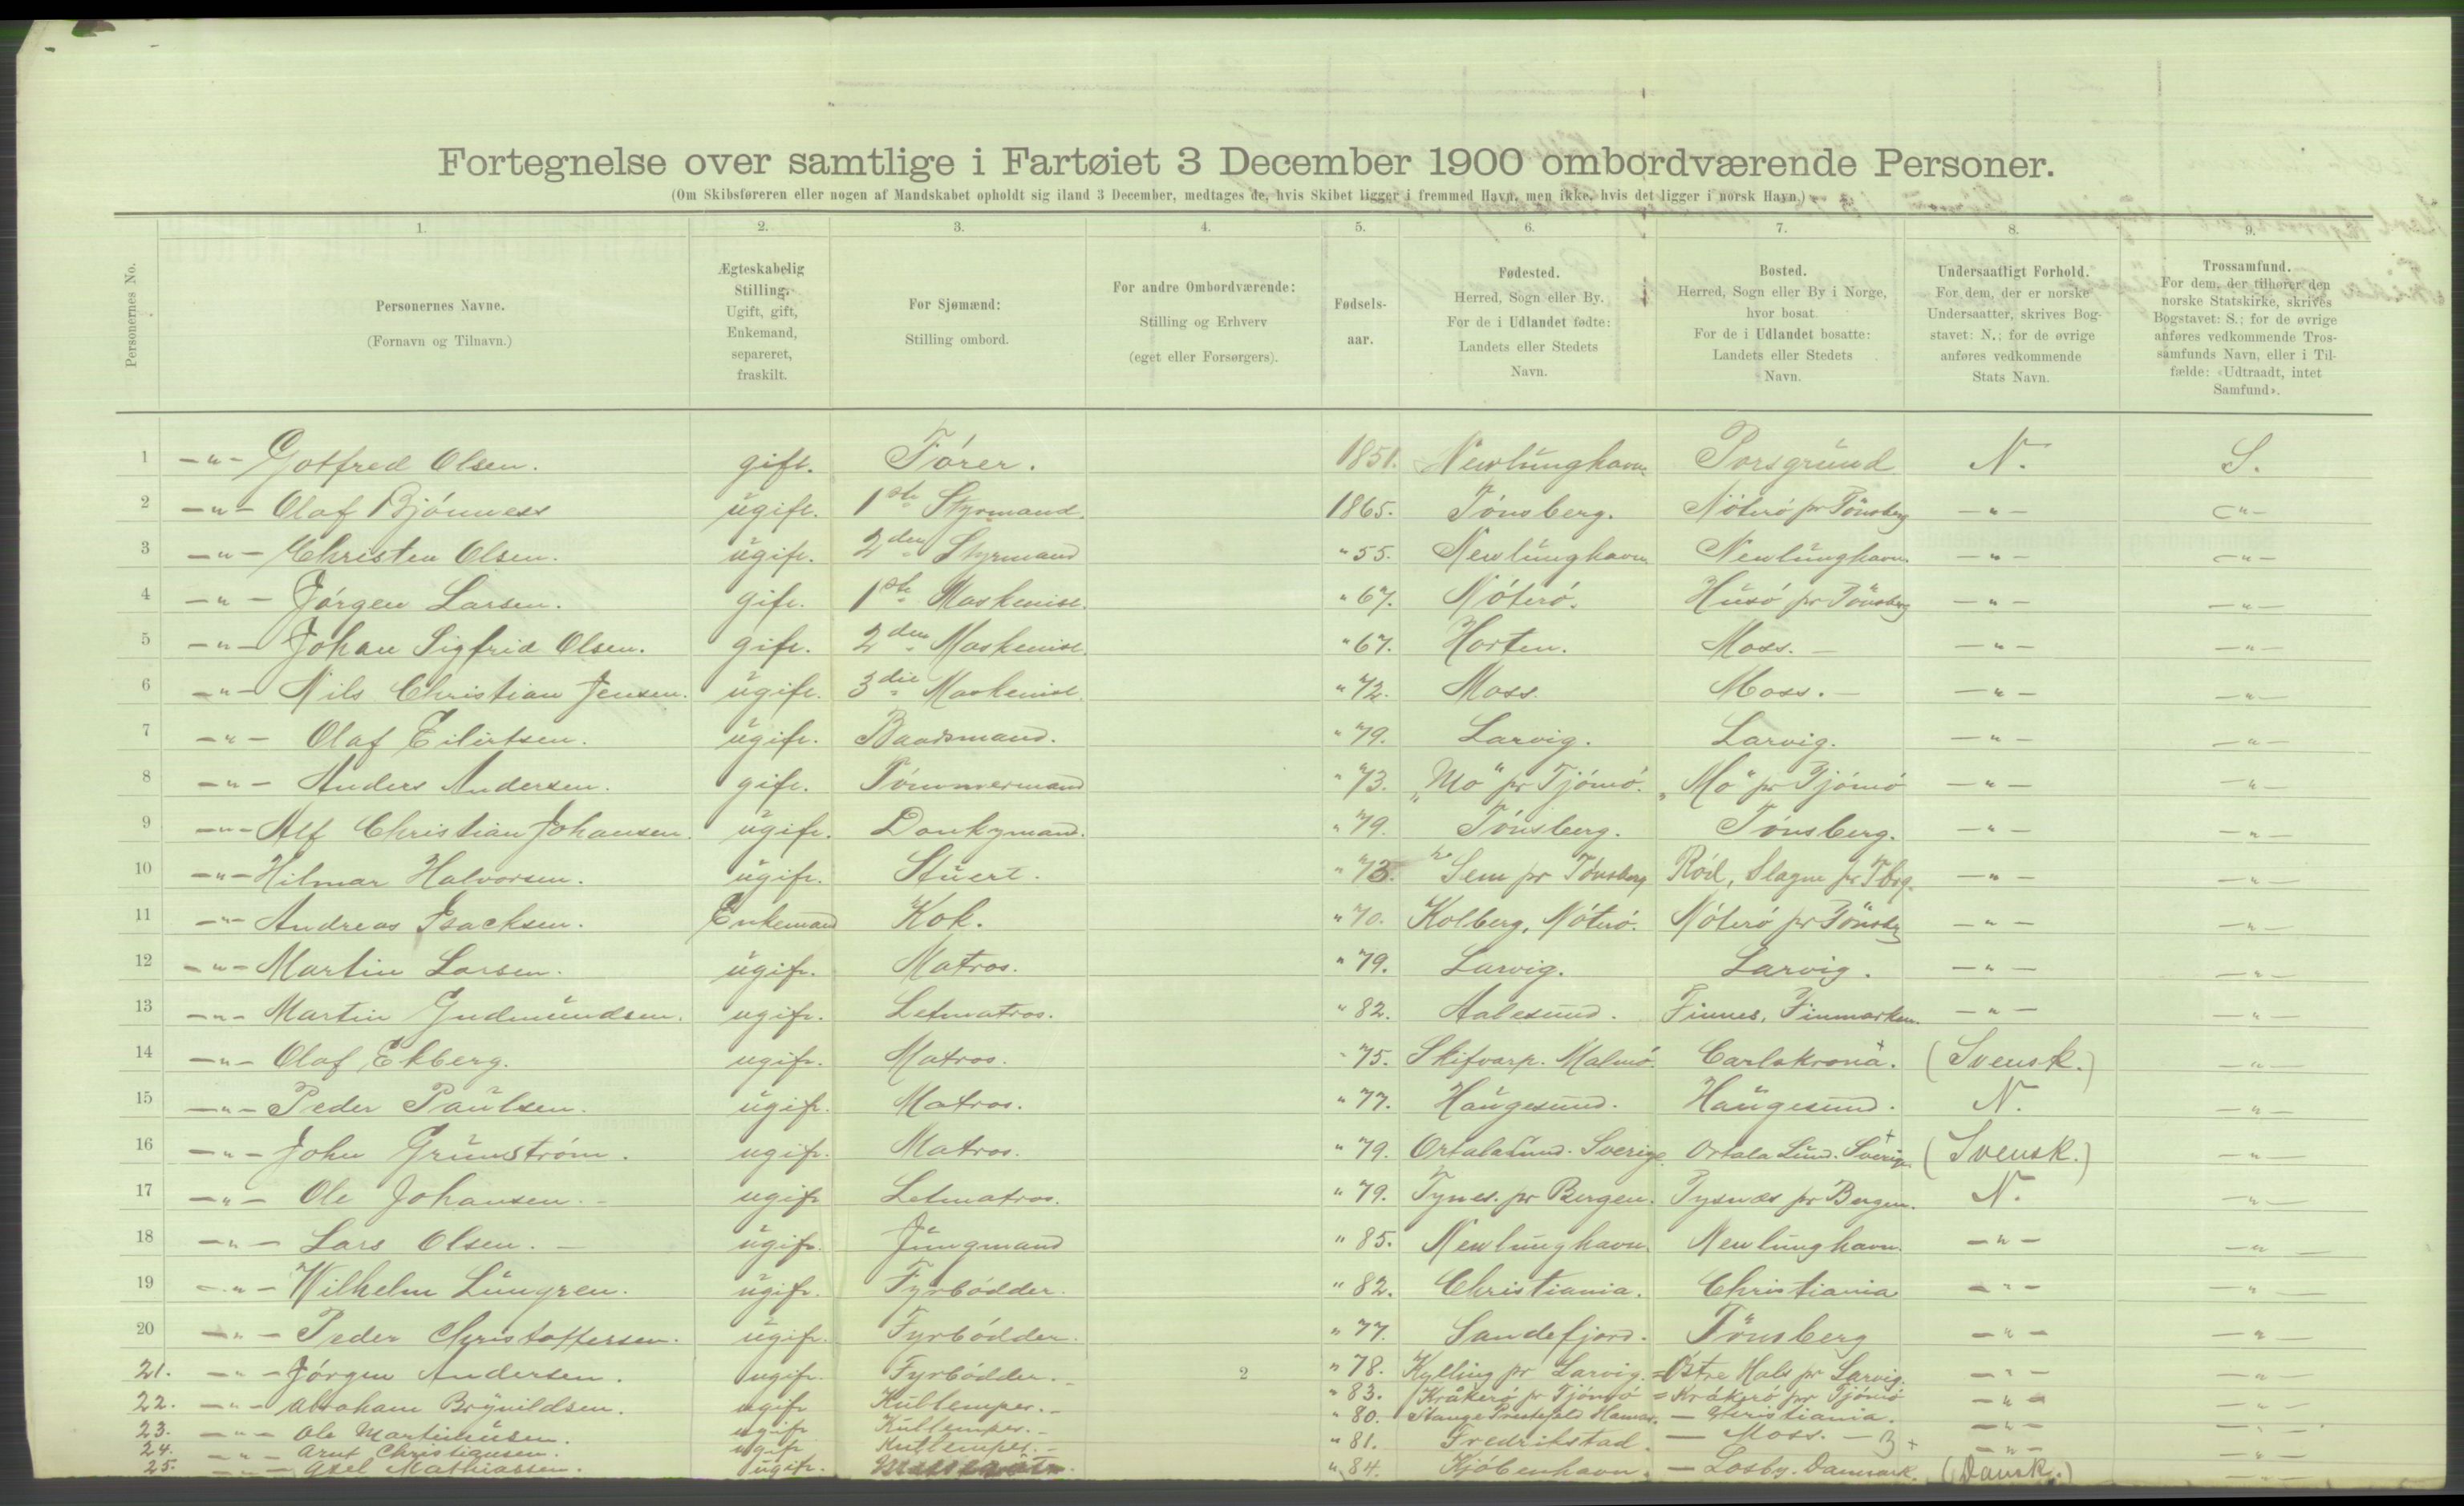 Fortegnelse over samtlige i Fartøiet 3 December 1900 ombordværende Personer.
(Om Skibsføreren eller nogen af Mandskabet opholdt sig iland 3 December, medtages de, hvis Skibet ligger i fremmed Havn, men ikke, hvis det ligger i norsk Havn.)
1. 2. 3. 4. 5. 6. 7. 8. 9.
Personernes No.
Personernes Navne.
(Fornavn og Tilnavn.)
Ægteskabelig
Stilling.
Ugift, gift,
Enkemand,
separeret,
fraskilt.
For Sjømænd:
Stilling ombord.
For andre Ombordværende:
Stilling og Erhverv
(eget eller Forsørgers).
Fødsels-
aar.
Fødested.
Herred, Sogn eller By.
For de i Udlandet fødte:
Landets eller Stedets
Navn.
Bosted.
Herred, Sogn eller By i Norge,
hvor bosat.
For de i Udlandet bosatte:
Landets eller Stedets
Navn.
Undersaatligt Forhold.
For dem, der er norske
Undersaatter, skrives Bog-
stavet: N.; for de øvrige
anføres vedkommende
Stats Navn.
Trossamfund.
For dem, der tilhører den
norske Statskirke, skrives
Bogstavet: S.; for de øvrige
anføres vedkommende Tros-
samfunds Navn, eller i Til-
fælde: «Udtraadt, intet
Samfund».
1 -"- Gotfred Olsen. gift. Fører. 1851. Nevlunghavn Porsgrund N. S.
2 -"- Olaf Bjónness ugift. 1ste Styrmand. 1865. Tónsberg. Nóteró pr Tönsberg -"- -"-
3 -"- Christen Olsen. ugift. 2den Styrmand "55. Nevlunghavn Nevlunghavn. -"- -"-
4 -"- Jórgen Larsen. gift. 1ste Maskenist. "67. Nóteró. Husó pr Tönsberg -"- -"-
5 -"- Johan Sigfrid Olsen. gift. 2den Maskenist. "67. Horten. Moss. - -"- -"-
6 -"- Nils Christian Jensen. ugift. 3die Maskenist. "72. Moss. Moss. - -"- -"-
7 -"- Olaf Eilertsen. ugift. Baadsmand. "79. Larvig. Larvig. -"- -"-
8 -"- Anders Andersen. gift. Tómmermand "73. "Mo" pr Tjómó. "Mo" pr Tjómó -"- -"-
9 -"- Alf Christian Johansen. ugift. Donkymand. "79. Tónsberg. Tónsberg. -"- -"-
10 -"- Hilmar Halvorsen. ugift. Stuert. "73. Sem pr Tónsberg Ród, Slagen pr Tbrg. -"- -"-
11 -"- Andreas Isacksen. Enkemand Kok. "70. Kolberg, Nóteró. Nóteró pr Tönsbg -"- -"-
12 -"- Martin Larsen. ugift. Matros. "79. Larvig. Larvig. -"- -"-
13 -"- Martin Gudmundsen. ugift. Letmatros. "82. Aalesund. Finnes, Finmarken. -"- -"-
14 -"- Olaf Ekberg. ugift. Matros. "75. Skifvarp. Malmó. Carlskrona. (Svensk.) -"-
15 -"- Peder Paulsen. ugift. Matros. "77. Haugesund. Haugesund. N. -"-
16 -"- John Grunström. ugift. Matros. "79. Ortalalund. Sverige. Ortala Lund. Sverige. (Svensk.) -"-
17 -"- Ole Johansen. - ugift Letmatros. "79. Tynes. pr Bergen. Tysnæs pr Bergen. N. -"-
18 -"- Lars Olsen. - ugift. Jungmand "85. Nevlunghavn. Nevlunghavn. -"- -"-
19 -"- Wilhelm Lungren. ugift. Fyrbódder. "82. Christiania. Christiania -"- -"-
20 -"- Peder Christoffersen. ugift. Fyrbódder. "77. Sandefjord. Tönsberg -"- -"-
21. -"- Jórgen Andersen. ugift. Fyrbódder. - 2 "78. Kylling pr Larvig. = Östre Hals pr Larvig. -"- -"-
22. -"- Abraham Brynildsen. ugift Kullemper. - "83. Kråkeró pr Tjómó = Kråkeró pr Tjómó -"- -"-
23. -"- Ole Martinusen. ugift Kullemper. - "80. Stange Prestegjeld Hamar. - Christiania. -"- -"-
24. -"- Arnt Christiansen. ugift Kullemper. - "81. Fredrikstad. - Moss. - -"- -"-
25. -"- Axel Mathiassen. ugift. "84. Kjóbenhavn. - Losby. Danmark. (Dansk.) -"-